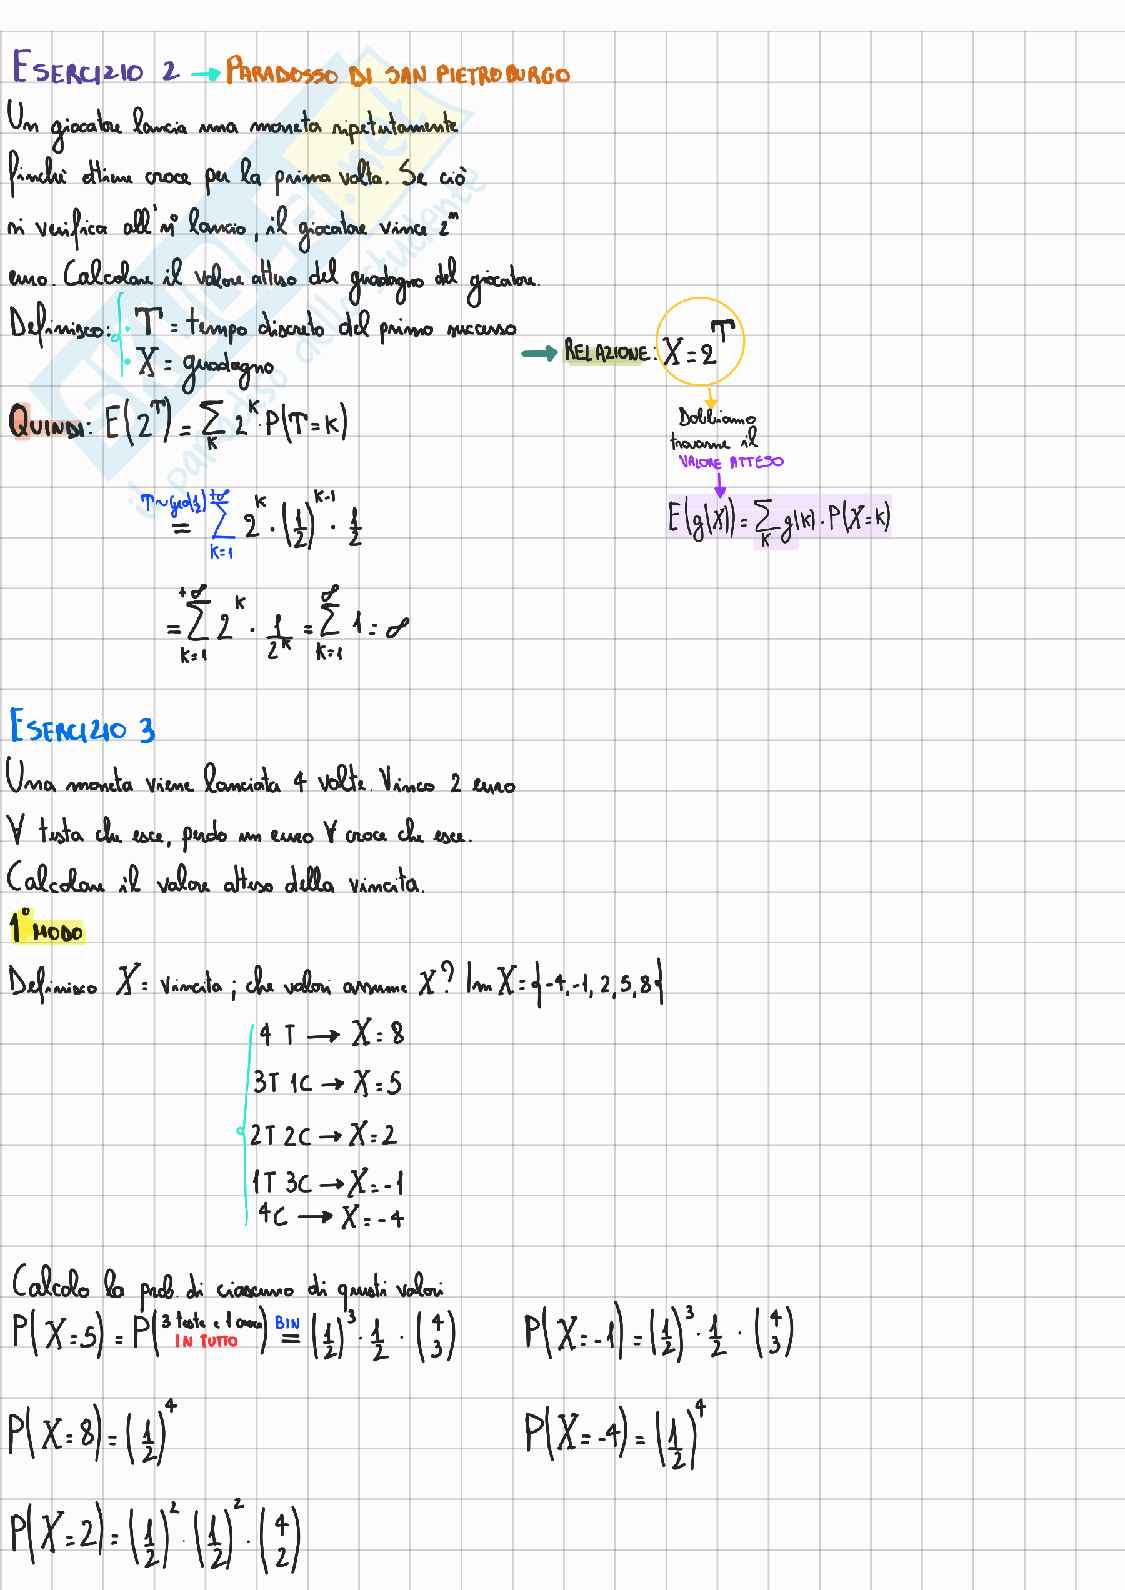 ESERCIZIO 2 → PARADOSSO DI SAN PIETROBURGO
Un giocatore lancia una moneta ripetutamente
finché ottiene croce per la prima volta. Se ciò
si verifica all'n° lancio, il giocatore vince 2^n
euro. Calcolare il valore atteso del guadagno del giocatore.
Definisco: • T = tempo discreto del primo successo
• X = guadagno
→ RELAZIONE: X = 2^T
Dobbiamo
trovarne il
VALORE ATTESO
E(g(X)) = Σ_K g(K) · P(X=K)
QUINDI: E(2^T) = Σ_K 2^K · P(T=K)
T~geo(1/2)
= Σ_{K=1}^{+∞} 2^K · (1/2)^{K-1} · 1/2
= Σ_{K=1}^{+∞} 2^K · 1/2^K = Σ_{K=1}^{∞} 1 = ∞
ESERCIZIO 3
Una moneta viene lanciata 4 volte. Vinco 2 euro
∀ testa che esce, perdo un euro ∀ croce che esce.
Calcolare il valore atteso della vincita.
1° MODO
Definisco X = vincita ; che valori assume X? Im X = {-4, -1, 2, 5, 8}
4 T → X = 8
3T 1C → X = 5
2T 2C → X = 2
1T 3C → X = -1
4C → X = -4
Calcolo la prob. di ciascuno di questi valori
P(X=5) = P(3 teste e 1 croce IN TUTTO) =^{BIN} (1/2)^3 · 1/2 · (4 3)
P(X=-1) = (1/2)^3 · 1/2 · (4 3)
P(X=8) = (1/2)^4
P(X=-4) = (1/2)^4
P(X=2) = (1/2)^2 · (1/2)^2 · (4 2)